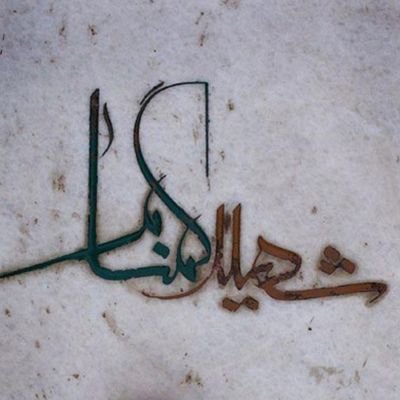 شهید گمنام